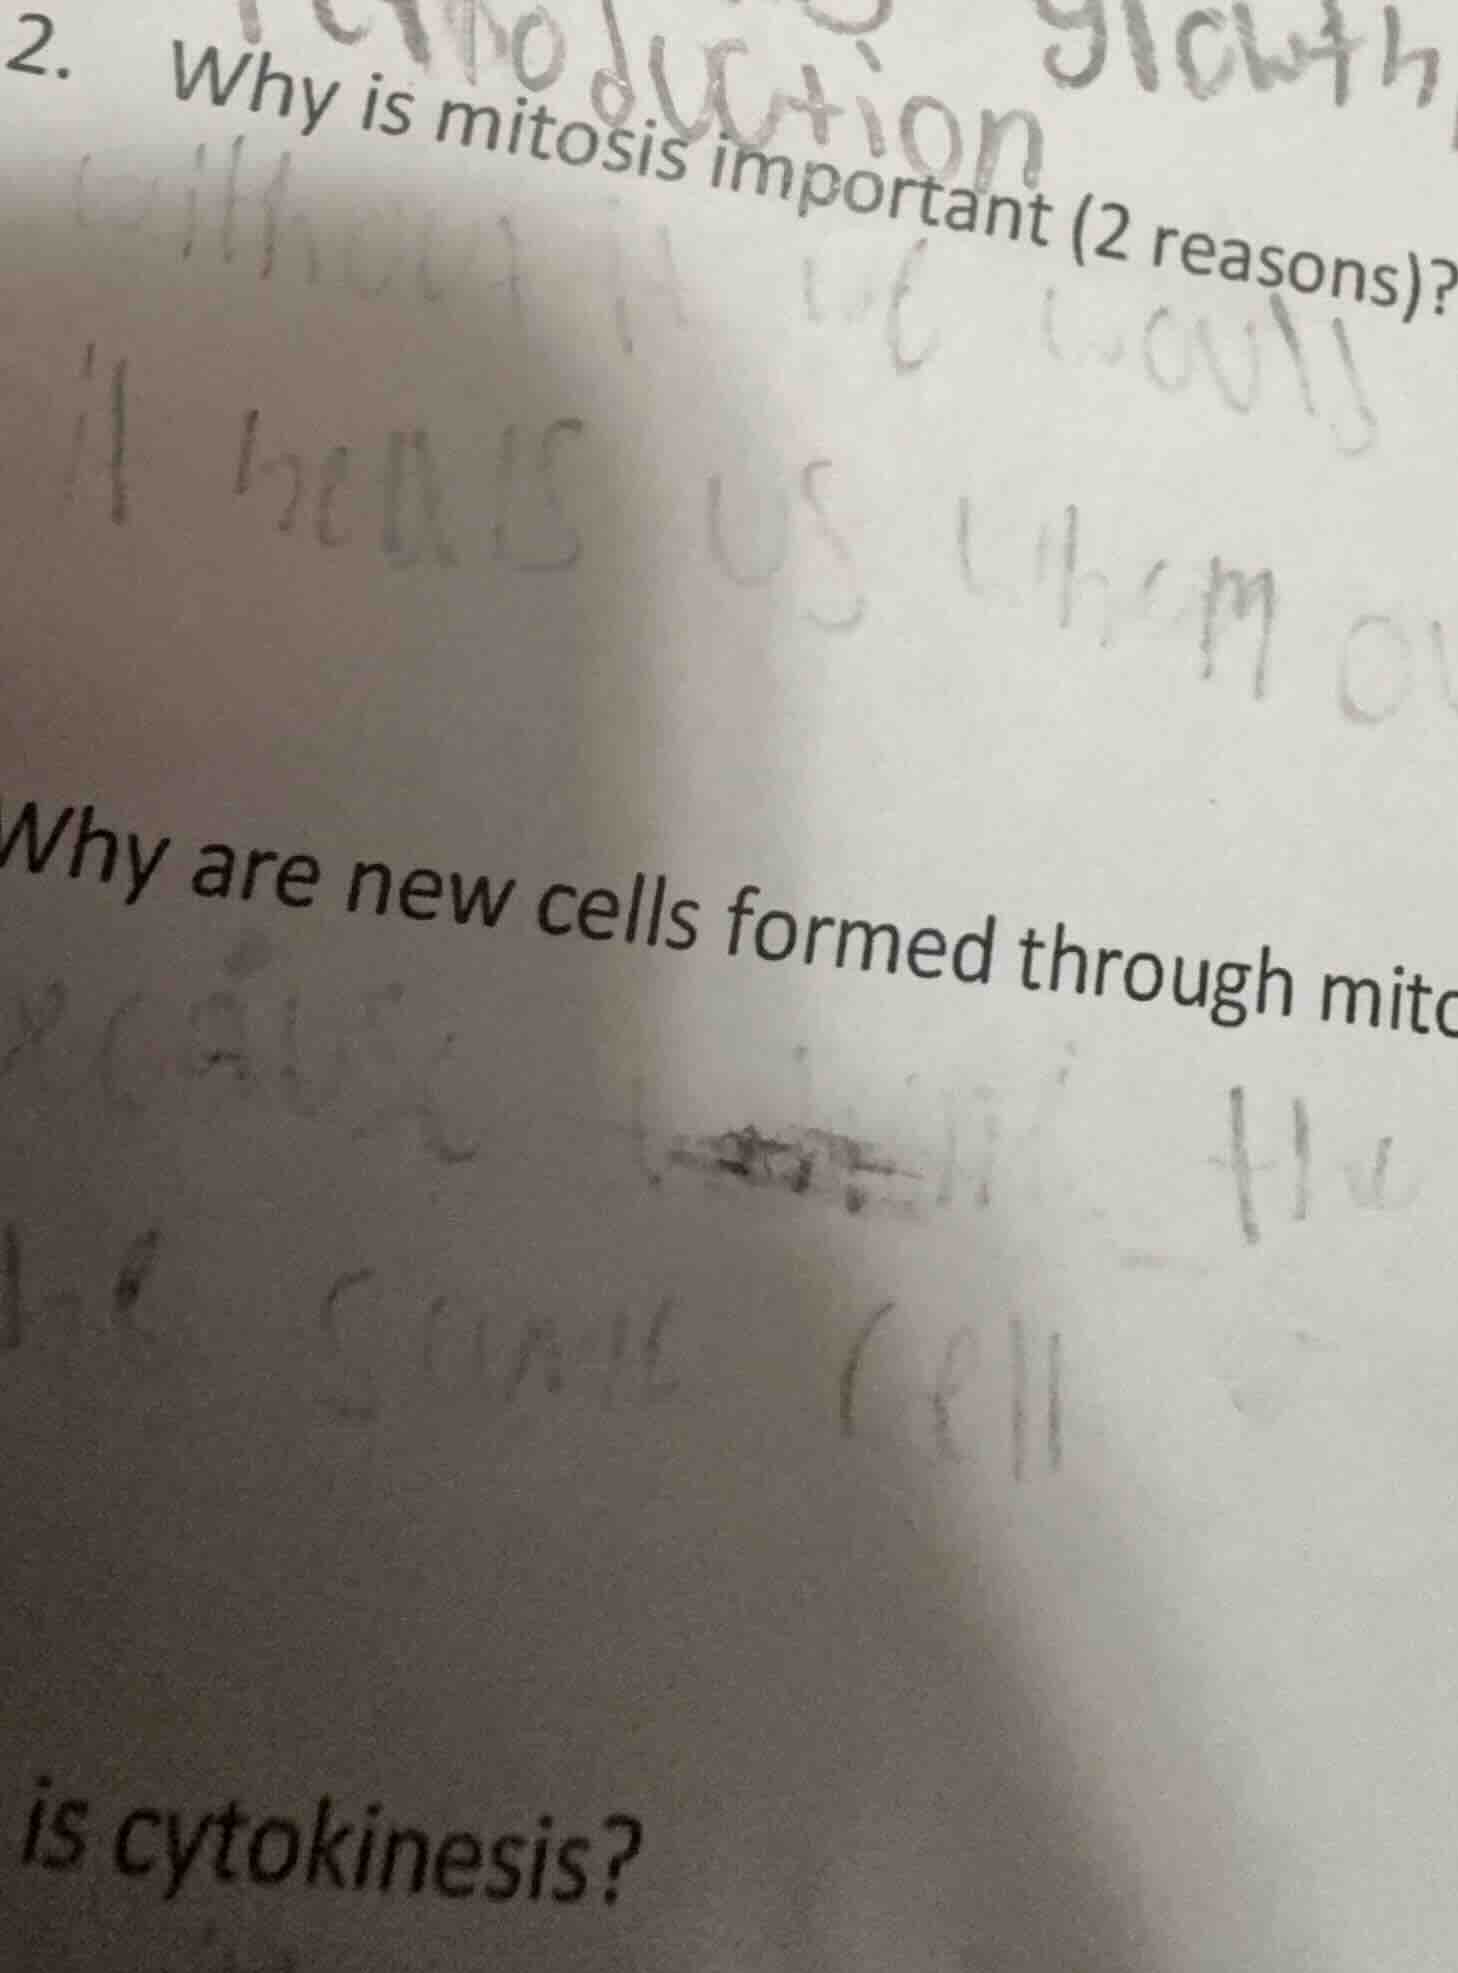 reproduction growth
2. Why is mitosis important (2 reasons)?
without it we would
it heals us when
Why are new cells formed through
the
same cell
is cytokinesis?